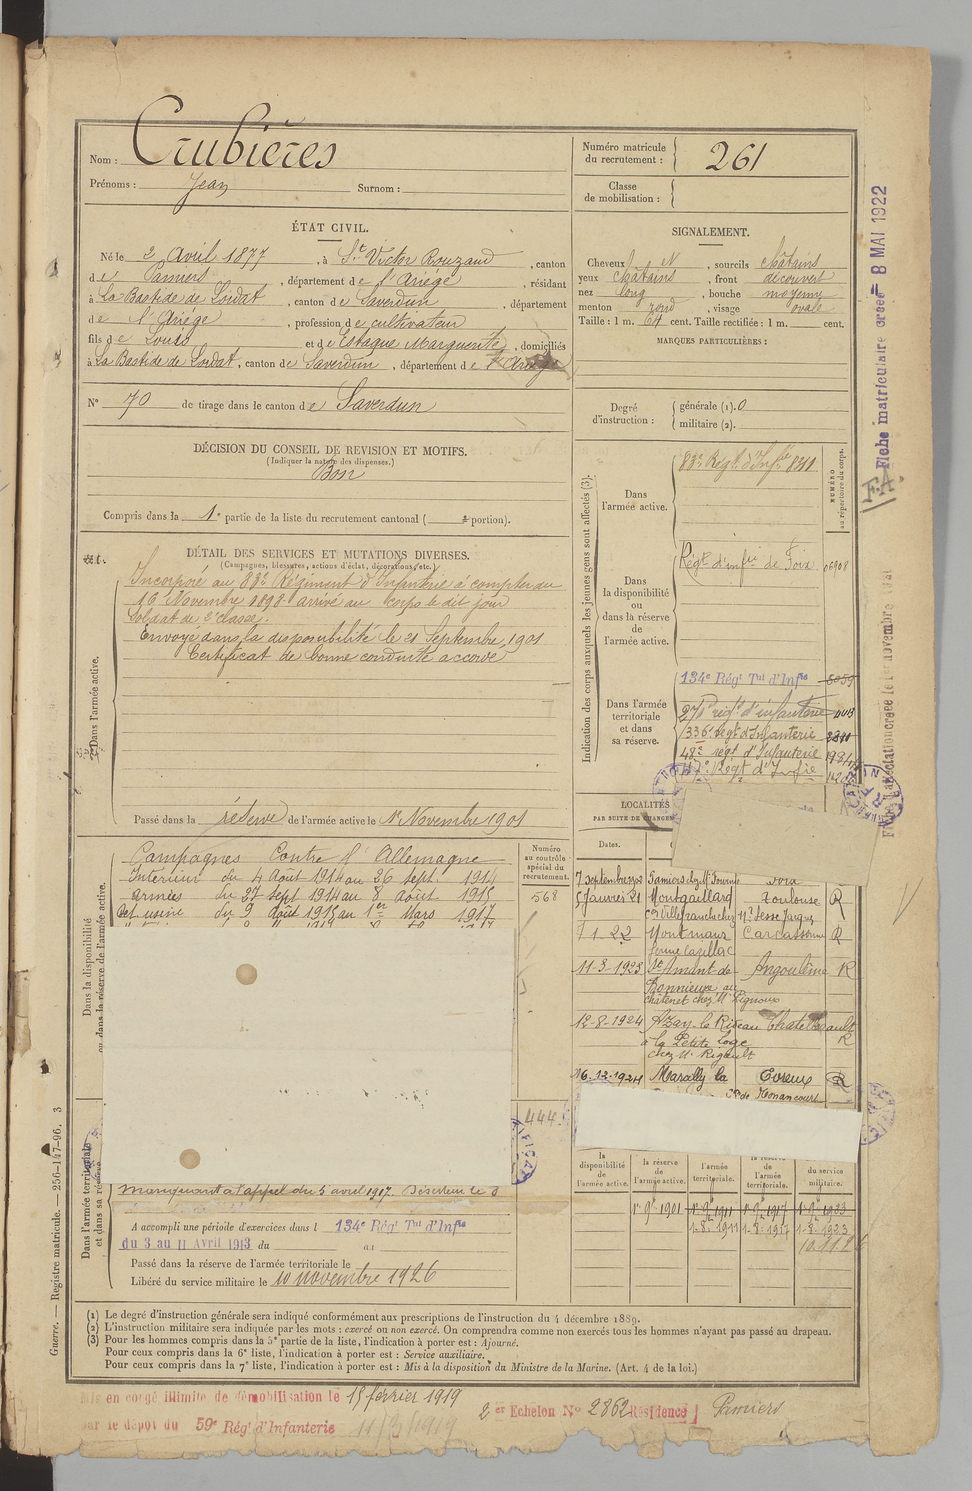 Nom : Crubières
Prénoms : Jean Surnom :
Numéro matricule du recrutement : 261
Classe de mobilisation :
ÉTAT CIVIL.
Né le 2 Avril 1877, à St Victor Rouzaud, canton
de Pamiers, département de l'Ariège, résidant
à La Bastide de Lordat, canton de Saverdun, département
de l'Ariège, profession de cultivateur
fils de Louis et de Estaque Marguerite, domiciliés
à La Bastide de Lordat, canton de Saverdun, département de l'Ariège
N° 70 de tirage dans le canton de Saverdun
SIGNALEMENT.
Cheveux N, sourcils châtains
yeux châtains, front découvert
nez long, bouche moyenne
menton rond, visage ovale
Taille : 1 m. 64 cent. Taille rectifiée : 1 m. cent.
MARQUES PARTICULIÈRES :
Degré d'instruction : générale (1). 0
militaire (2).
DÉCISION DU CONSEIL DE REVISION ET MOTIFS.
(Indiquer la nature des dispenses.)
Bon
Compris dans la 1e partie de la liste du recrutement cantonal ( portion).
DÉTAIL DES SERVICES ET MUTATIONS DIVERSES.
(Campagnes, blessures, actions d'éclat, décorations, etc.)
Dans l'armée active.
Incorporé au 83e Régiment d'Infanterie à compter du
16 Novembre 1898 arrivé au corps le dit jour
Soldat de 2e classe.
Envoyé dans la disponibilité le 21 Septembre 1901
Certificat de bonne conduite accordé
Passé dans la réserve de l'armée active le 1er Novembre 1901
Indication des corps auxquels les jeunes gens sont affectés (3).
NUMÉRO au répertoire du corps.
Dans l'armée active.
83e Régt d'Infie 8311
Dans la disponibilité ou dans la réserve de l'armée active.
Régt d'infie de Foix 06908
Dans l'armée territoriale et dans sa réserve.
134e Régt Tal d'Infie
271e régt d'infanterie
336e régt d'Infanterie
48e régt d'Infanterie
117e Régt d'Infie
LOCALITÉS
PAR SUITE DE CHANGEM
Dates.
7 septembre Pamiers chez Mr Foix
5 Janvier 21 Montgaillard Toulouse R
con Villefranche chez Mr
7 1. 22 Montmaur Carcassonne R
ferme
11-3-1923 St Amant de Angoulême R
Bonnieure au
châtenet chez Mr Pignoux
12-8-1924 Azay le Rideau Chatellerault R
à la Petite Loge
chez Mr Rigault
16.12.1924 Marcilly la Evreux R
Con de Nonancourt
Dans la disponibilité ou dans la réserve de l'armée active.
Numéro au contrôle spécial du recrutement.
568
Campagnes Contre l'Allemagne
Intérieur du 4 Août 1914 au 26 sept. 1914
armées du 27 sept 1914 au 8 août 1915
Det usine du 9 Août 1915 au 1er Mars 1917
444
Dans l'armée territoriale et dans sa réserve
Manquant à l'appel du 5 avril 1917. Déserteur le 8
A accompli une période d'exercices dans l 134e Régt Tal d'Infie
du 3 au 11 Avril 1913 du au
Passé dans la réserve de l'armée territoriale le
Libéré du service militaire le 10 novembre 1926
la disponibilité de l'armée active.
la réserve de l'armée active.
l'armée territoriale.
la réserve de l'armée territoriale.
du service militaire.
1er 9bre 1901 1er 9bre 1911 1er 9bre 1917 1er 9bre 1923
1-8-1911 1-8-1917 1-8-1923
10.11.26
(1) Le degré d'instruction générale sera indiqué conformément aux prescriptions de l'instruction du 4 décembre 1889.
(2) L'instruction militaire sera indiquée par les mots : exercé ou non exercé. On comprendra comme non exercés tous les hommes n'ayant pas passé au drapeau.
(3) Pour les hommes compris dans la 5e partie de la liste, l'indication à porter est : Ajourné.
Pour ceux compris dans la 6e liste, l'indication à porter est : Service auxiliaire.
Pour ceux compris dans la 7e liste, l'indication à porter est : Mis à la disposition du Ministre de la Marine. (Art. 4 de la loi.)
Mis en congé illimité de démobilisation le 15 février 1919
par le dépôt du 59e Régt d'Infanterie 11/3/1919
2er Echelon No 2862 Résidence Pamiers
Guerre. — Registre matricule. — 256-147-96. 3
Fiche matriculaire créée 8 MAI 1922
F.A.
novembre